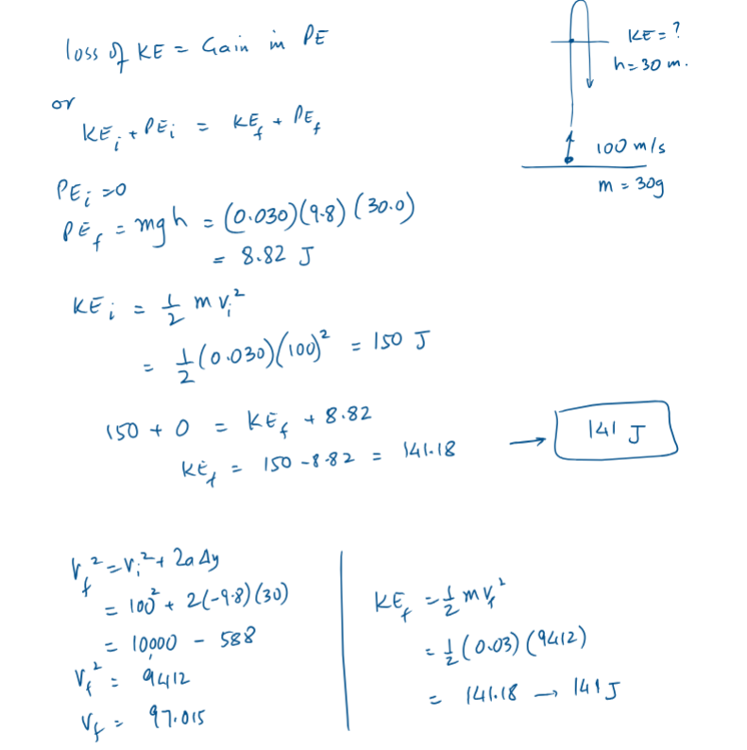 loss of KE = Gain in PE
or
KE_i + PE_i = KE_f + PE_f
KE = ?
h = 30 m.
100 m/s
m = 30g
PE_i = 0
PE_f = mgh = (0.030)(9.8)(30.0)
= 8.82 J
KE_i = 1/2 m v_i^2
= 1/2 (0.030)(100)^2 = 150 J
150 + 0 = KE_f + 8.82
KE_f = 150 - 8.82 = 141.18 → 141 J
v_f^2 = v_i^2 + 2a Δy
= 100^2 + 2(-9.8)(30)
= 10,000 - 588
v_f^2 = 9412
v_f = 97.015
KE_f = 1/2 m v_f^2
= 1/2 (0.03)(9412)
= 141.18 → 141 J